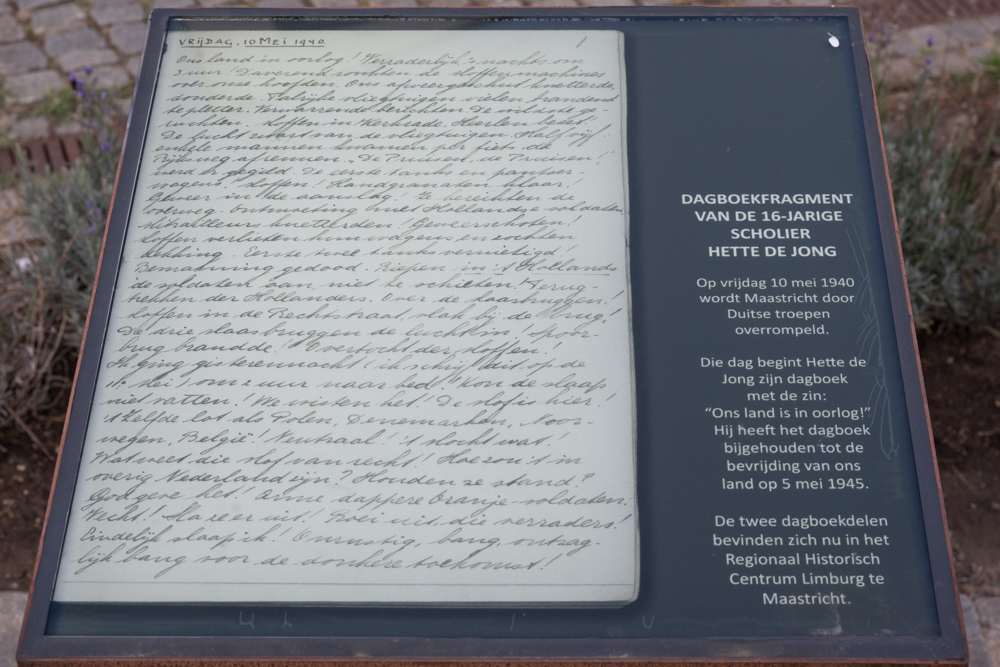 VRIJDAG, 10 MEI 1940
1
Ons land in oorlog! Verraderlijk 's nachts om
3 uur! Daverend ronkten de stoffenmachines
over onze hoofden. Ons afweergeschut knetterde,
donderde. Talrijke vliegtuigen vielen brandend
te pletter. Verwarrende berichten. De wildste ge-
ruchten. Stoffen in Kerkrade, Heerlen bezet!
De lucht zwart van de vliegtuigen. Half vijf
enkele mannen kwamen per fiets de
Rijksweg afrennen. De Pruisen, de Pruisen!
werd er gegild. De eerste tanks en pantser-
wagens, stoffen! Handgranaten klaar!
Geweer in de aanslag. Ze bereikten de
overweg. Ontmoeting met Hollandse soldaten.
Mitrailleurs knetterden! Geweerschoten!
Stoffen verlieten hun wagens en zochten
dekking. Eerste twee tanks vernietigd!
Bemanning gedood. Riepen in 't Hollands
de soldaten aan, niet te schieten! Terug-
trekken der Hollanders. Over de Maasbruggen!
Stoffen in de Rechtstraat, vlak bij de brug!
De drie Maasbruggen de lucht in! Spoor-
brug brandde! Overtocht der stoffen!
Ik ging gisterennacht (ik schrijf dit op de
11e Mei) om 2 uur naar bed. Kon de slaap
niet vatten. We wisten het! De stof is hier!
't Zelfde lot als Polen, Denemarken, Noor-
wegen, België! Neutraal! 't Mocht wat.
Wat weet die stof van recht! Hoe zou 't in
overig Nederland zijn? Houden ze stand?
God geve het! Arme dappere Oranje-soldaten.
Vecht! Sla ze er uit! Roei uit, die verraders!
Eindelijk slaap ik! Onrustig, bang, ontzag-
lijk bang voor de donkere toekomst!
DAGBOEKFRAGMENT
VAN DE 16-JARIGE
SCHOLIER
HETTE DE JONG
Op vrijdag 10 mei 1940
wordt Maastricht door
Duitse troepen
overrompeld.
Die dag begint Hette de
Jong zijn dagboek
met de zin:
“Ons land is in oorlog!”
Hij heeft het dagboek
bijgehouden tot de
bevrijding van ons
land op 5 mei 1945.
De twee dagboekdelen
bevinden zich nu in het
Regionaal Historisch
Centrum Limburg te
Maastricht.